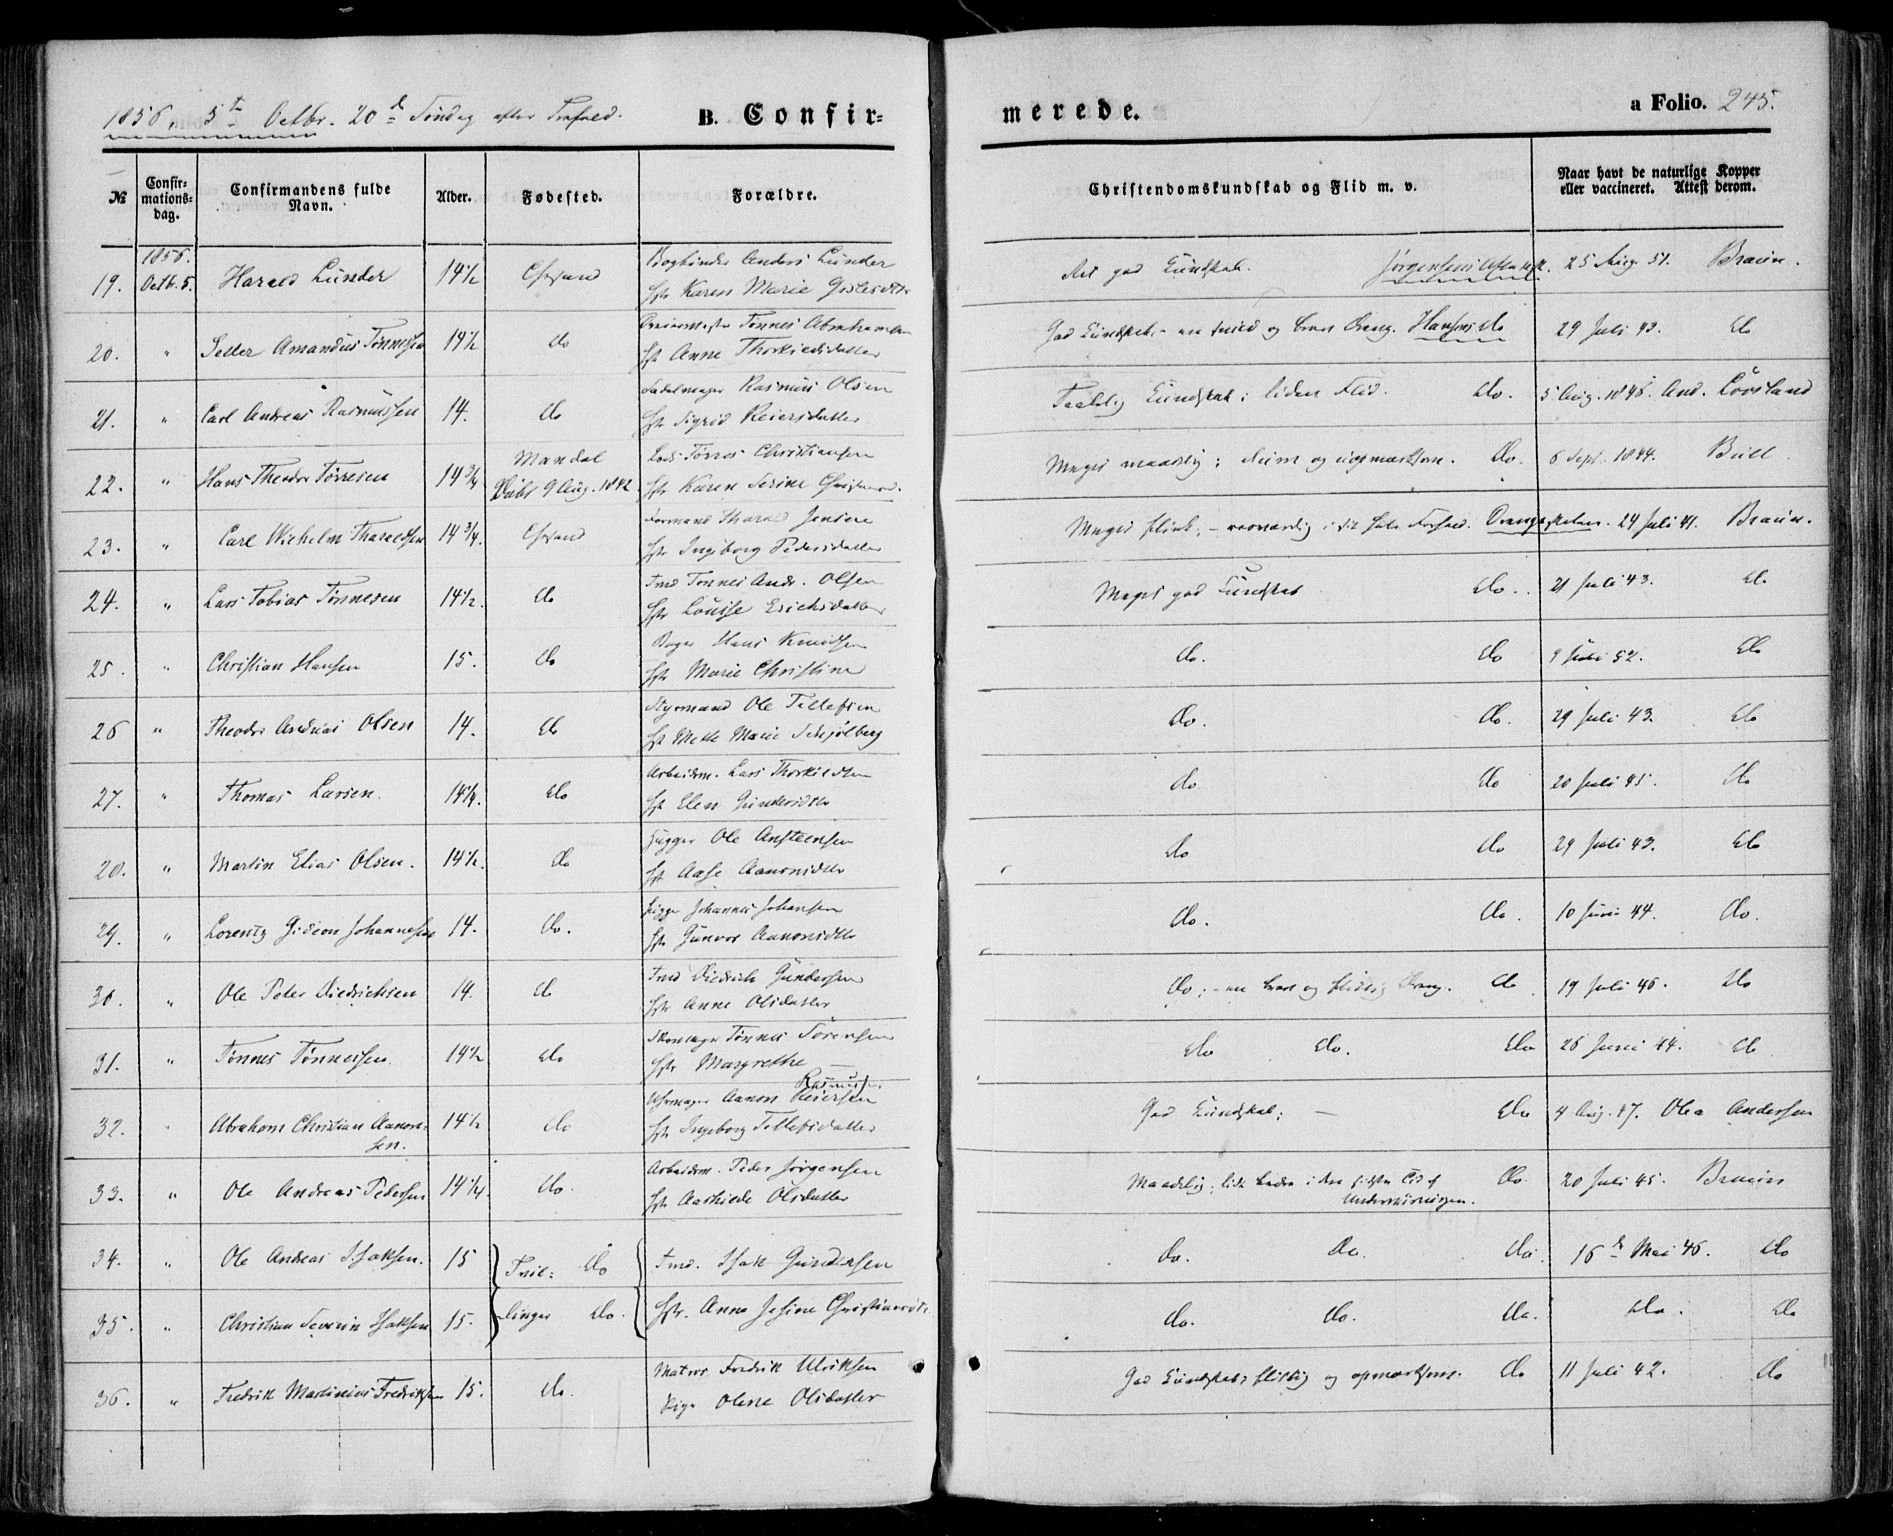 1856. 5t Octbr. 20d Søndag efter Trefold.
B. Confir=
merede.
a Folio. 245.
№
Confir=
mations=
dag.
Confirmandens fulde
Navn.
Alder.
Fødested.
Forældre.
Christendomskundskab og Flid m. v.
Naar havt de naturlige Kopper
eller vaccineret. Attest derom.
1856.
19. Octb. 5. Harald Lunder 14½ Chrsand Bogbinder Anders Lunder
Hstr Karen Marie
god Kundskab. 25 Aug. 51. Braun.
20. " Amandus Tønnessen 14½ do Tønnes Abrahamsen
Hst Anne Thorkildsdatter
God Kundskab. - en og brav Dreng. 29 Juli 43. do
21. " Carl Andreas Rasmussen 14. do Sadelmager Rasmus Olsen
Hst Sigrid Reiersdatter
Kundskab; liden Flid. do. 5 Aug. 1845. And. Løvsland
22. " Hans Theodor Tørresen 14¾ Mandal Lods Tørres Christiansen
Døbt 9 Aug. 1842 Hstr Karen Serine
Meget maadelig; og uopmærksom. do. 6 Sept. 1844. Bull
23. " Carl Wilhelm Tharaldsen 14¾. Chrsand Formand Tharald Jensen
Hstr Ingeborg Pedersdatter
Meget flink; Drengeskolen. 24 Juli 41. Braun.
24. " Lars Tobias Tønnesen 14½. do Tmd Tønnes Andr. Olsen
Hstr Louise Erichsdatter
Meget god Kundskab do. 21 Juli 43. do
25. " Christian Hansen 15. do Bager Hans Knudsen
Hstr Marie Christine
do. do 9 52. do
26 " Theodor Andreas Olsen 14. do Styrmand Ole Tellefsen
Hst Mette Marie
do. do. 29 Juli 43. do
27. " Thomas Larsen. 14¼. do Arbeidsm. Lars Thorkildsen
Hst Elen
do do 20 Juli 45. do
28. " Martin Elias Olsen. 14½. do Ole Ansteensen
Hst Aase Aanonsdtr
do do 29 Juli 43. do
29. " Lorentz Gideon Johannesen 14. do. Johannes Johansen
Hstr Gunvor Aanonsdtr
do. do. 10 Juni 44. do.
30. " Ole Peter Diedrichsen 14. do Tmd Diedrich Gundersen
Hstr Anne Olsdatter
do; - en brav og flittig Dreng. do 19 Juli 46. do
31. " Tønnes Tønnessen 14½ do Skomager Tønnes Sørensen
Hstr Margrethe —
do do. do 26 Juni 44. do
Rasmussen
32. " Abraham Christian Aanon=
sen. 14½ do Aanon Reiersen
Hstr Ingeborg Tellefsdatter
God Kundskab; — do 4 Aug. 47. Olea Andersen
33. " Ole Andreas Pedersen 14¼. do. Arbeidsm. Peder Jørgensen
Hst Aashilde Olsdatter
Maadelig; lidt bedre i den sidste Tid af
Underviisningen. do. 20 Juli 45. Braun
34. " Ole Andreas Isaksen. 15 Tvil: do Tmd. Isak Gundersen
do. do. do. 16d Mai 46. do
35. " Christian Severin Isaksen 15. linger do. Hstr. Anne Jesine
do. do. do. do. do
36. " Fredrik Martinius Fredriksen 15. do. Matros Fredrik Ulriksen
Pige Olene Olsdatter
God Kundskab; flittig og opmærksom. do 11 Juli 42. do